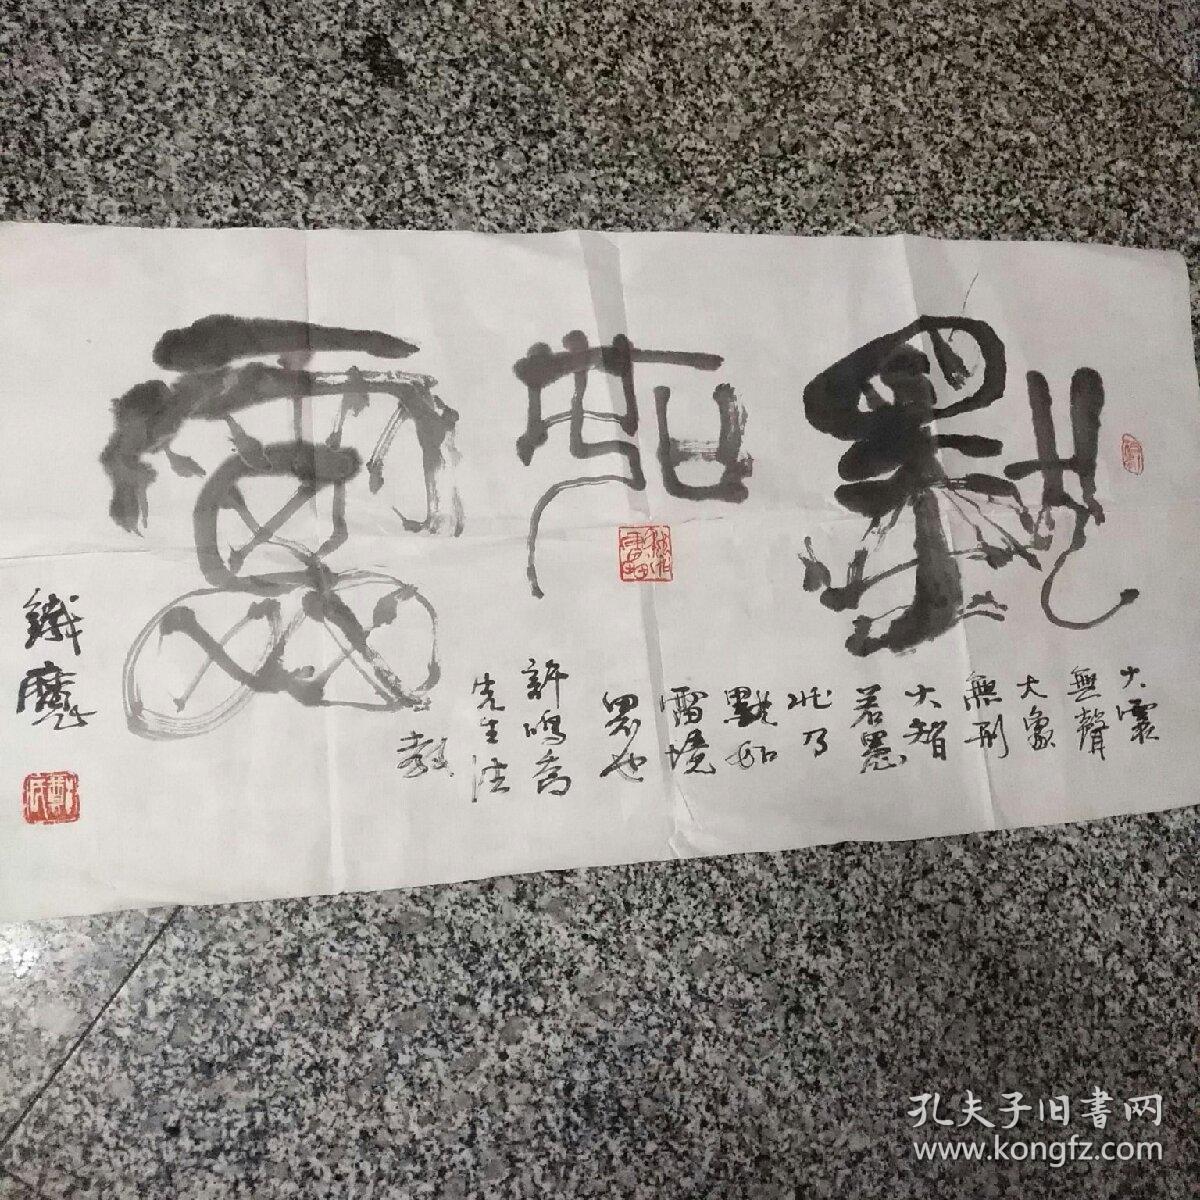 默如雷
大音
無聲
大象
無形
大智
若愚
此乃
默如
雷境
界也
許鳴喬
先生法
教
鐵魔
孔夫子旧書网
www.kongfz.com